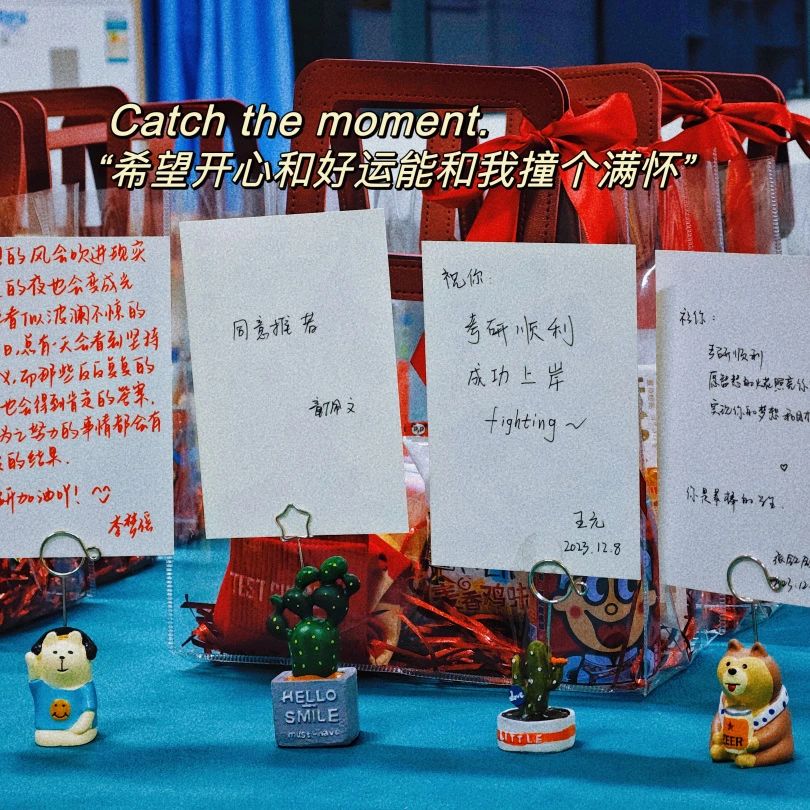 Catch the moment.
“希望开心和好运能和我撞个满怀”
的风会吹进现实
的夜也会变成光
看似波澜不惊的
日,总有一天会看到坚持
义,而那些反反复复的
也会得到肯定的答案.
为之努力的事情都会有
的结果.
研加油吖!
李梦瑶
同意推荐
祝你:
考研顺利
成功上岸
fighting~
王元
2023.12.8
祝你:
考研顺利
愿智慧的火花照亮你
实现你的梦想
你是最棒的
HELLO
SMILE
must-have
LITTLE
BEER
鸡味